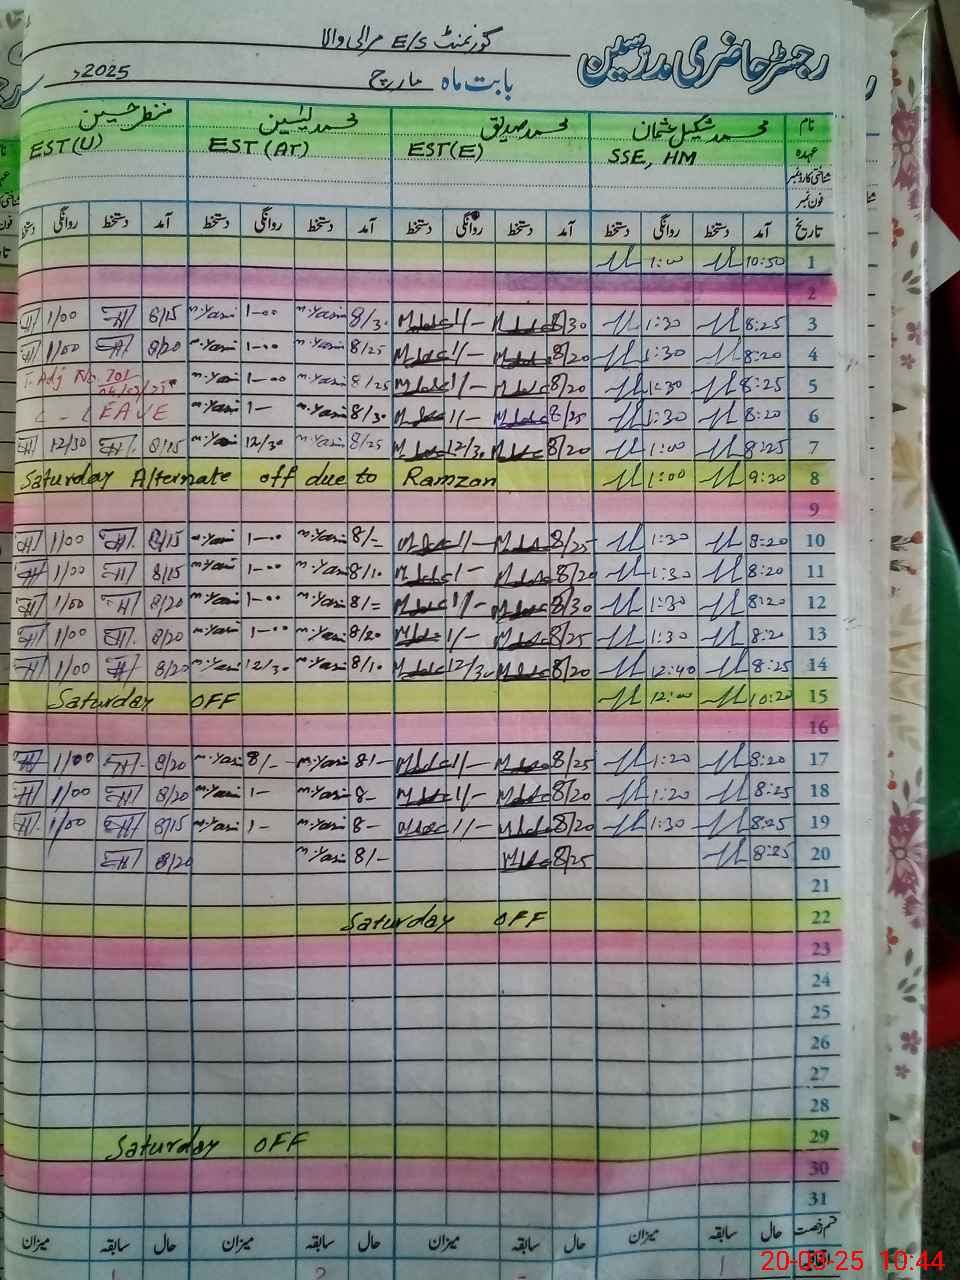 رجسٹر حاضری مدرسین گورنمنٹ E/S مرالی والا
بابت ماہ مارچ 2025ء
نام محمد شکیل عثمان محمد صدیق محمد یٰسین منظر حسین
عہدہ SSE, HM EST(E) EST (AT) EST(U)
شناختی کارڈ نمبر
فون نمبر
تاریخ آمد دستخط روانگی دستخط آمد دستخط روانگی دستخط آمد دستخط روانگی دستخط آمد دستخط روانگی دستخط
1 10:50 1:00
2
3 8:25 1:30 8/30 1/- 8/30 m.Yasin 1-00 m.Yasin 8/15 1/00
4 8:20 1:30 8/20 1/- 8/25 m.Yasin 1-00 m.Yasin 8/20 1/00
5 8:25 1:30 8/20 1/- 8/25 m.Yasin 1-00 m.Yasin T. Adj No. 701
6 8:20 1:30 8/25 1/- 8/30 m.Yasin 1- m.Yasin C - LEAVE
7 8:25 1:00 8/20 12/30 8/25 m.Yasin 12/30 m.Yasin 8/15 12/30
8 9:20 1:00 Saturday Alternate off due to Ramzan
9
10 8:20 1:30 8/25 1/- 8/= m.Yasin 1-00 m.Yasin 8/15 1/00
11 8:20 1:30 8/20 1/- 8/10 m.Yasin 1-00 m.Yasin 8/15 1/00
12 8:20 1:30 8/30 1/- 8/= m.Yasin 1-00 m.Yasin 8/20 1/00
13 8:20 1:30 8/25 1/- 8/20 m.Yasin 1-00 m.Yasin 8/20 1/00
14 8:25 12:40 8/20 12/30 8/10 m.Yasin 12/30 m.Yasin 8/20 1/00
15 10:20 12:00 Saturday OFF
16
17 8:20 1:20 8/25 1/- 8/- m.Yasin 8/- m.Yasin 8/20 1/00
18 8:25 1:20 8/20 1/- 8- m.Yasin 1- m.Yasin 8/20 1/00
19 8:25 1:30 8/20 1/- 8- m.Yasin 1- m.Yasin 8/15 1/00
20 8:25 8/25 8/- m.Yasin 8/20
21
22 Saturday OFF
23
24
25
26
27
28
29 Saturday OFF
30
31
قسم رخصت حال سابقہ میزان حال سابقہ میزان حال سابقہ میزان حال سابقہ میزان
20-03-25 10:44